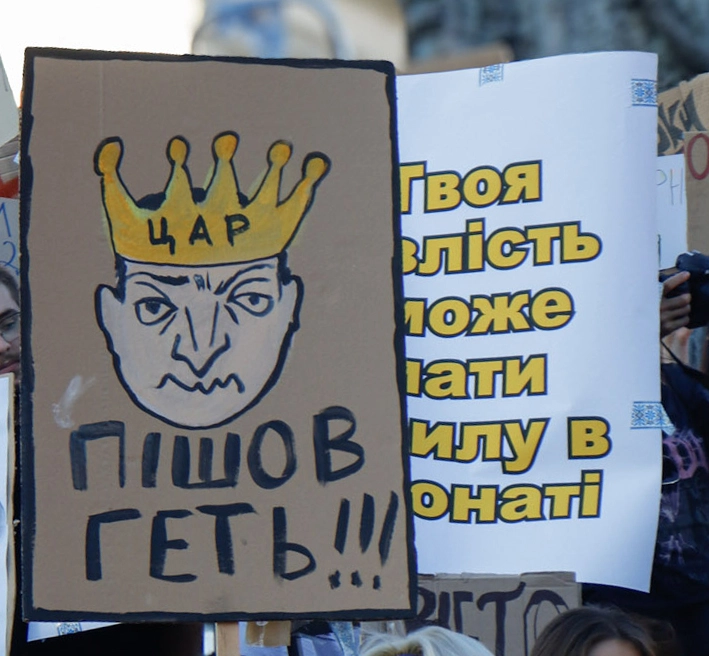 ЦАР
ПІШОВ
ГЕТЬ!!!
Твоя
злість
може
мати
силу в
донаті